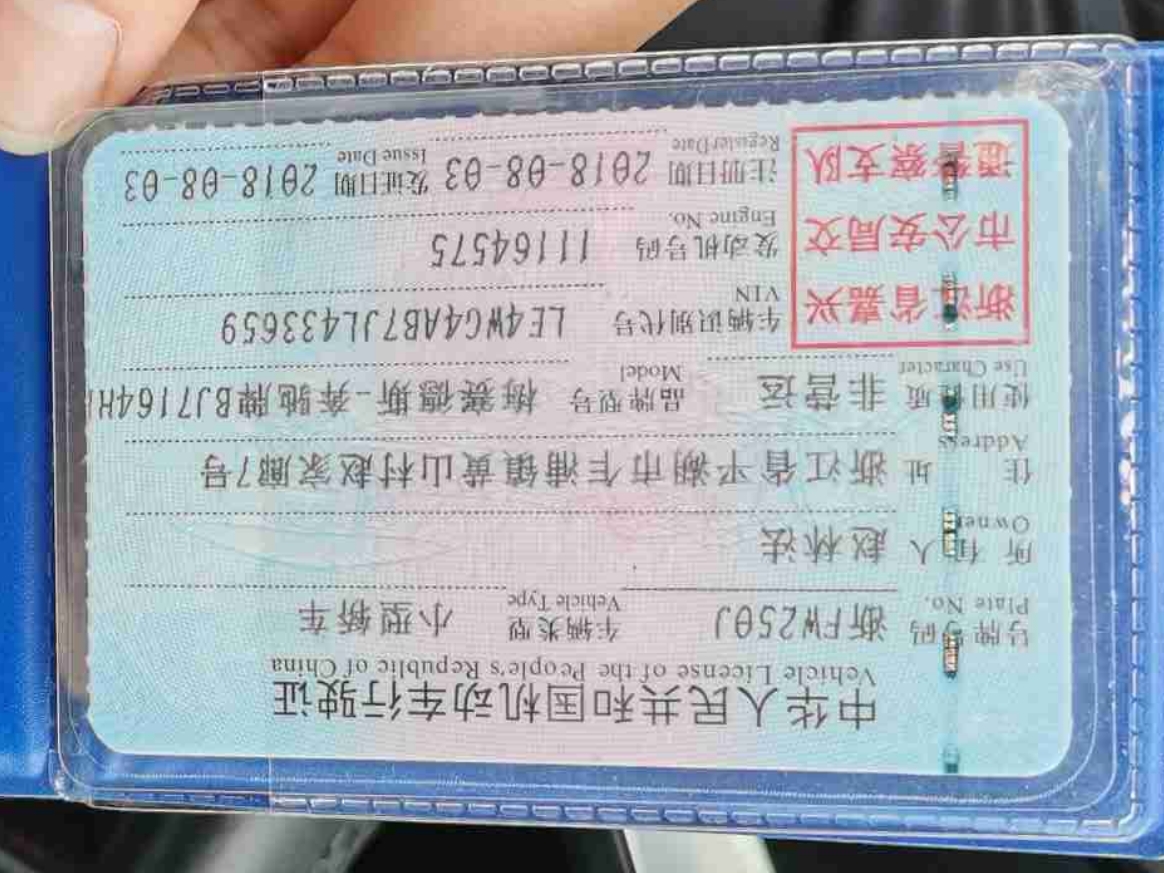 中华人民共和国机动车行驶证
Vehicle License of the People's Republic of China
号牌号码 浙FW250J 车辆类型 小型轿车
Plate No. Vehicle Type
所有人 赵林法
Owner
住址 浙江省平湖市乍浦镇黄山村赵家廊7号
Address
使用性质 非营运 品牌型号 梅赛德斯-奔驰牌BJ7164H
Use Character Model
浙江省嘉兴
市公安局交
通警察支队
车辆识别代号 LE4WG4AB7JL433659
VIN
发动机号码 11164575
Engine No.
注册日期 2018-08-03 发证日期 2018-08-03
Register Date Issue Date